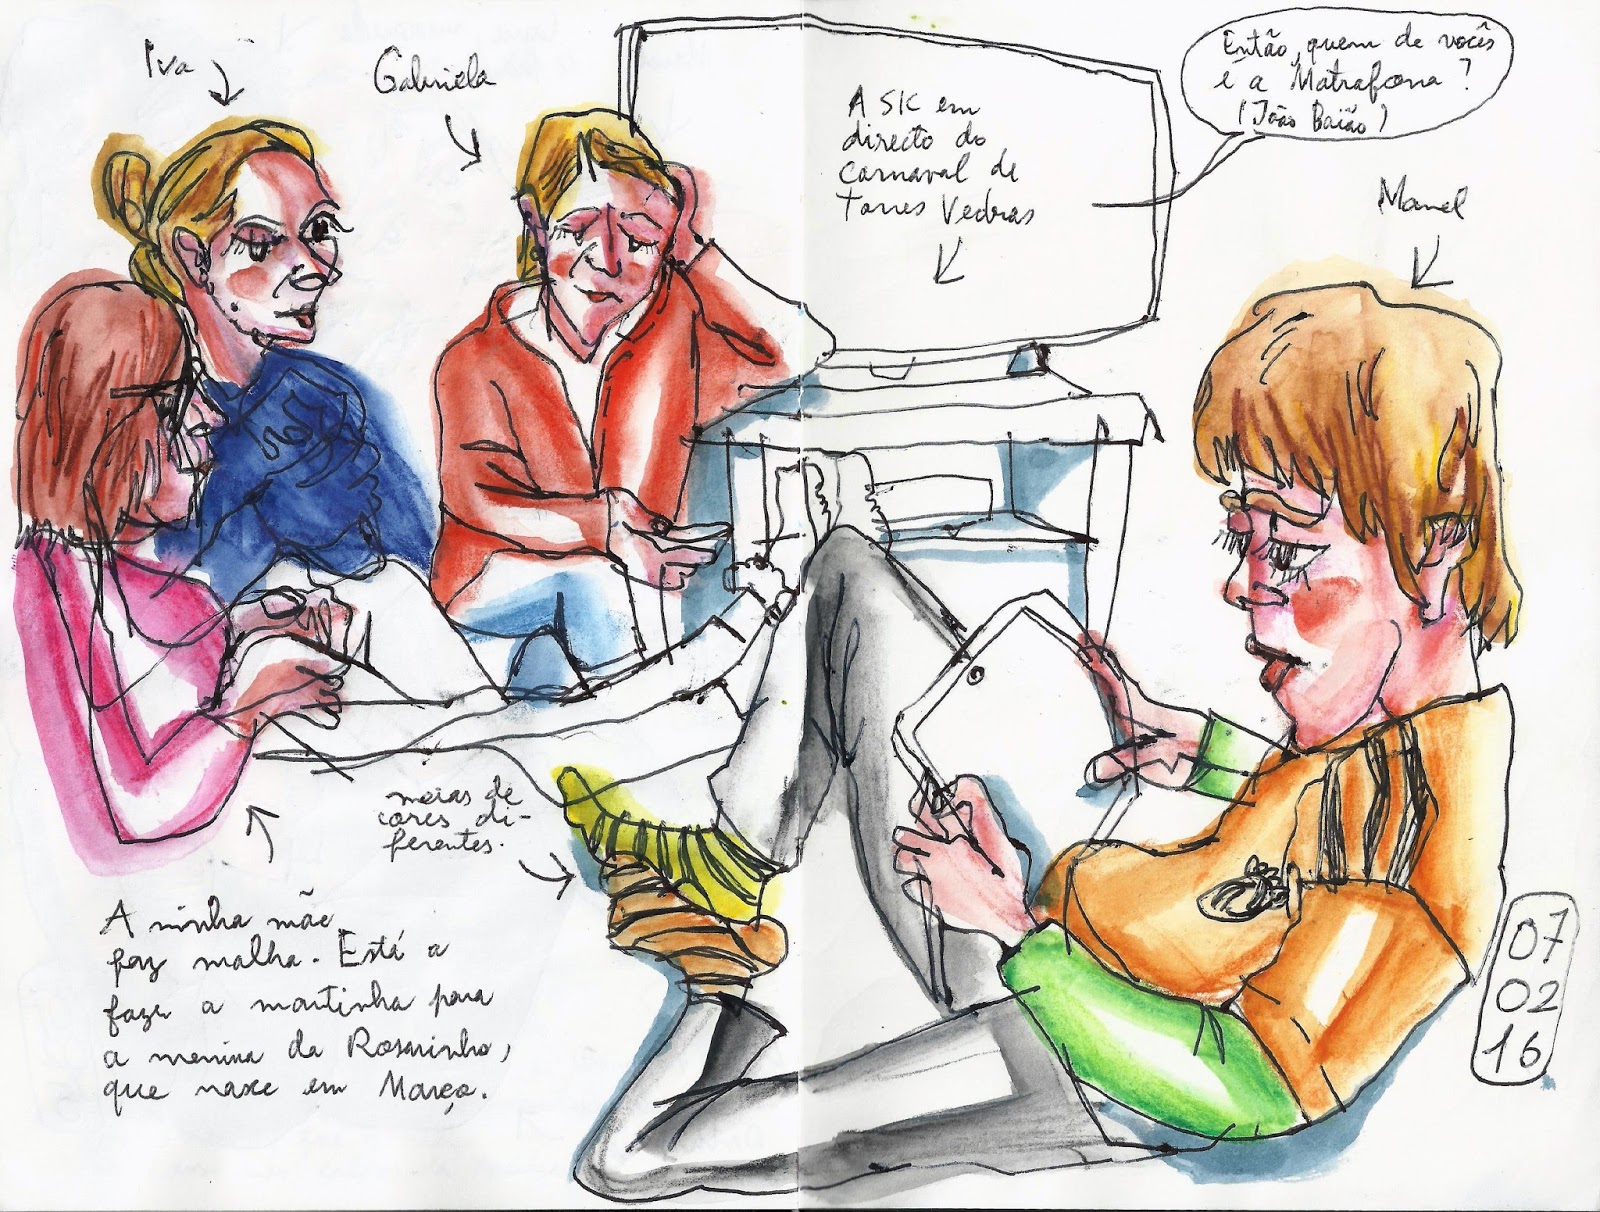 Iva
Gabriela
A SIC em
directo do
carnaval de
Torres Vedras
Então, quem de vocês
é a Matrafona?
(João Baião)
Manel
meias de
cores di-
ferentes.
A minha mãe
faz malha. Está a
fazer a mantinha para
a menina da Rosarinho,
que nasce em Março.
07
02
16